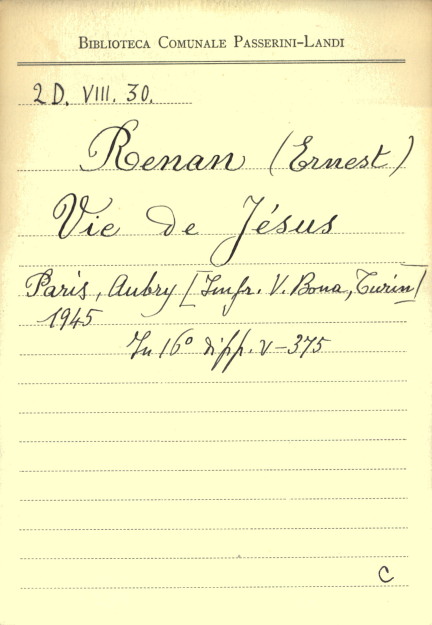 BIBLIOTECA COMUNALE PASSERINI-LANDI
2 D. VIII. 30.
Renan (Ernest)
Vie de Jésus
Paris, Aubry [Impr. V. Bona, Turin]
1945
In 16° di pp. V-375
C